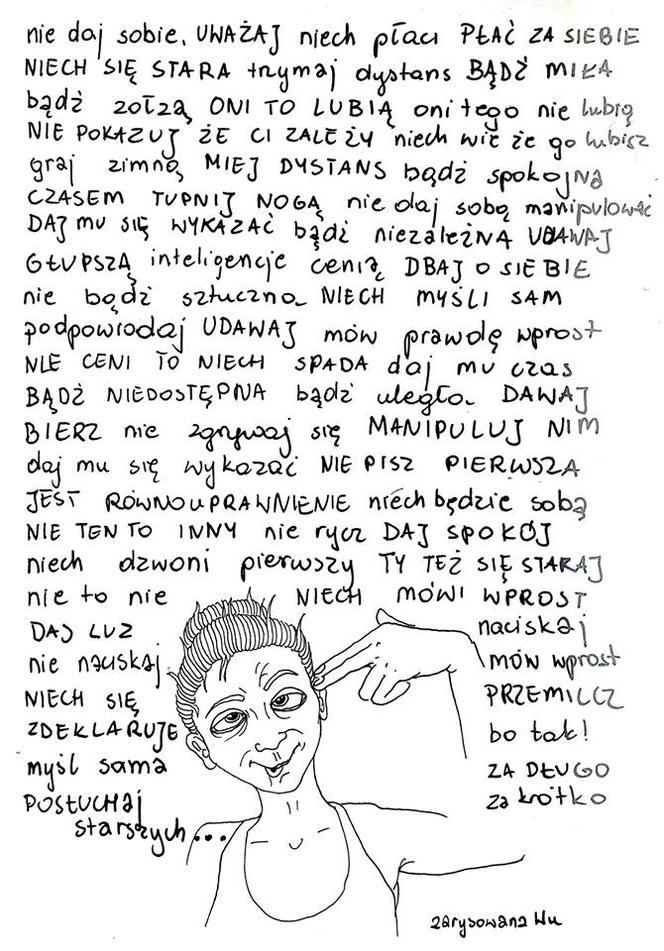 nie daj sobie, UWAŻAJ niech płaci PŁAĆ ZA SIEBIE
NIECH SIĘ STARA trzymaj dystans BĄDŹ MIŁA
bądź zołzą ONI TO LUBIĄ oni tego nie lubią
NIE POKAZUJ ŻE CI ZALEŻY niech wie że go lubisz
graj zimną MIEJ DYSTANS bądź spokojna
CZASEM TUPNIJ NOGĄ nie daj sobą manipulować
DAJ MU SIĘ WYKAZAĆ bądź niezależną UDAWAJ
GŁUPSZĄ inteligencje cenią DBAJ O SIEBIE
nie bądź sztuczna NIECH MYŚLI SAM
podpowiadaj UDAWAJ mów prawdę wprost
NIE CENI TO NIECH SPADA daj mu czas
BĄDŹ NIEDOSTĘPNA bądź uległa DAWAJ
BIERZ nie zgrywaj się MANIPULUJ NIM
daj mu się wykazać NIE PISZ PIERWSZA
JEST RÓWNOUPRAWNIENIE niech będzie sobą
NIE TEN TO INNY nie rycz DAJ SPOKÓJ
niech dzwoni pierwszy TY TEŻ SIĘ STARAJ
nie to nie NIECH MÓWI WPROST
DAJ LUZ naciskaj
nie naciskaj MÓW wprost
NIECH SIĘ PRZEMILCZ
ZDEKLARUJE bo tak!
myśl sama ZA DŁUGO
POSŁUCHAj za krótko
starszych...
zarysowana Wu